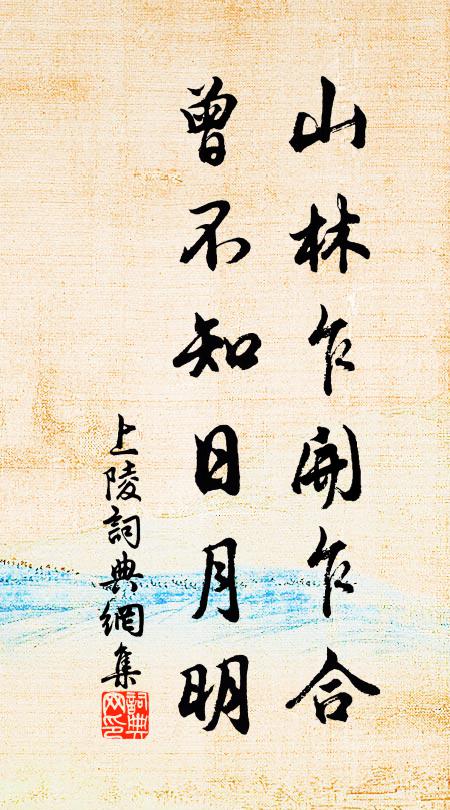 山林乍開乍合
曾不知日月明
上陵詞典網集
詞典